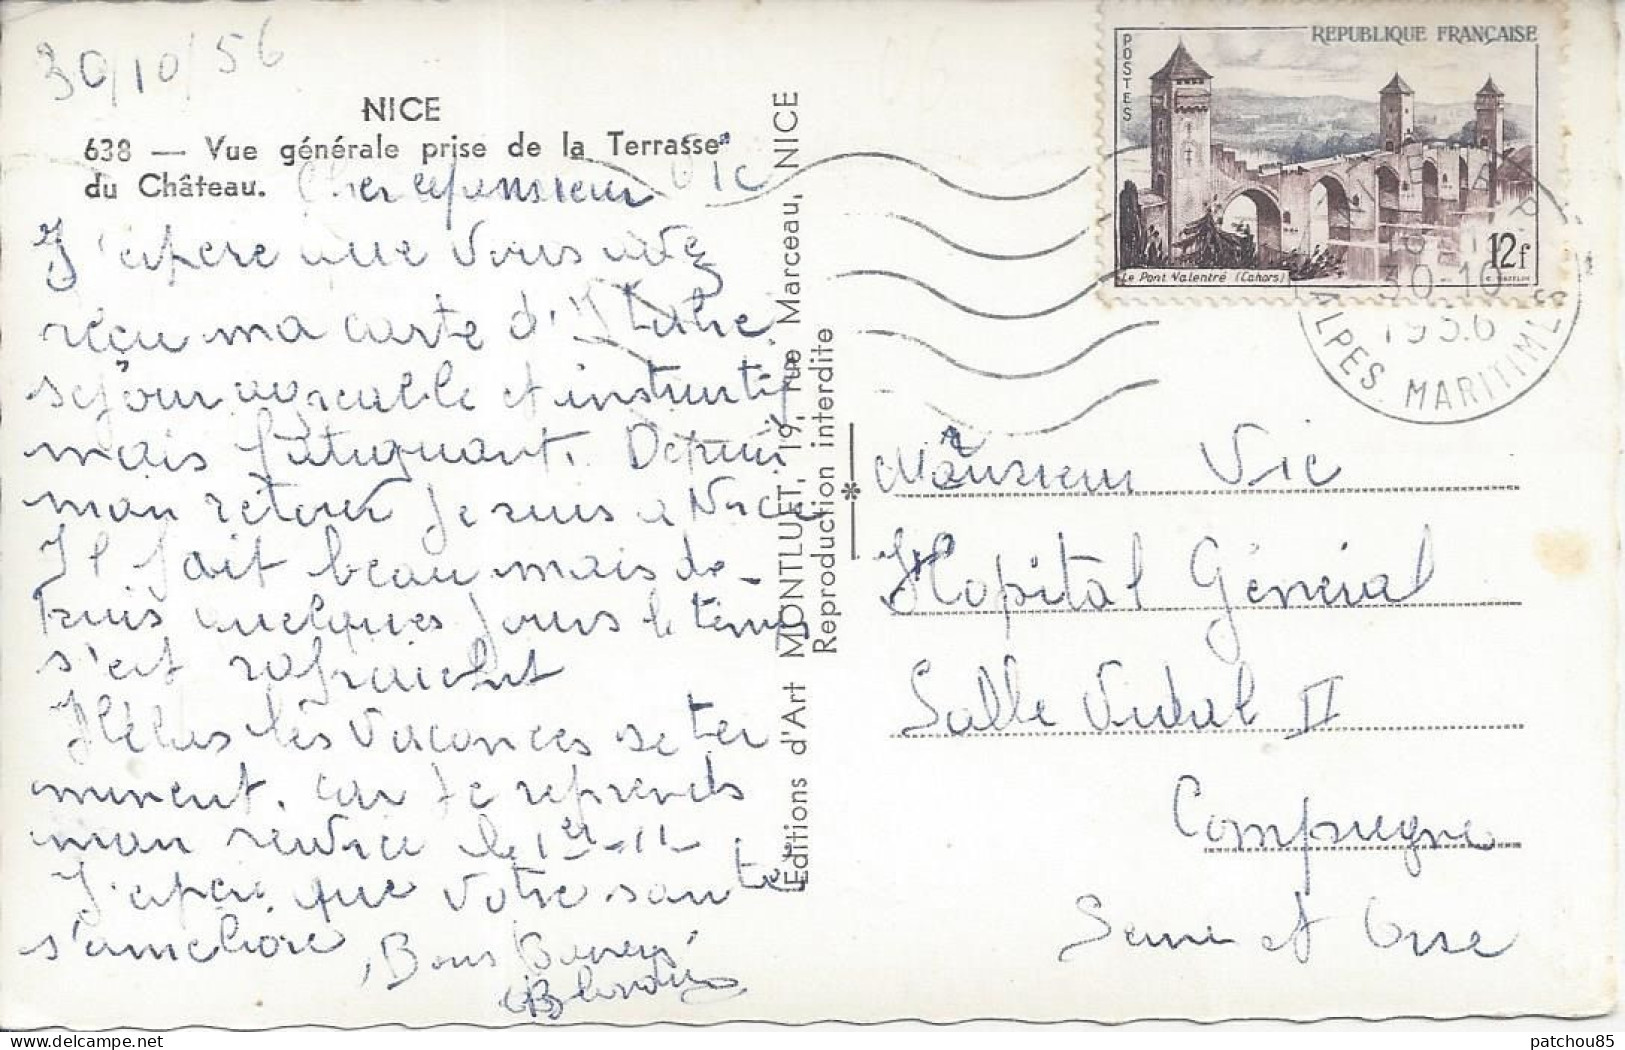 30/10/56
NICE
638 — Vue générale prise de la Terrasse
du Château.
Cher Monsieur Vic
J'espère que vous avez
reçu ma carte d'Italie
séjour agréable et instructif
mais fatiguant. Depuis
mon retour je suis a Nice
Il fait beau mais de-
puis quelques jours le temps
s'est rafraichit
Hélas les vacances se ter
minent, car je reprends
mon service le 1er-11-
J'espère que votre santé
s'améliore, Bons Baisers
Editions d'Art MONTLUET, 19, rue Marceau, NICE
Reproduction interdite
REPUBLIQUE FRANÇAISE
POSTES
12f
Le Pont Valentré (Cahors)
30-10
1956
ALPES MARITIMES
Monsieur Vic
Hopital Général
Salle Vidal II
Compiegne
Seine et Oise
patchou85